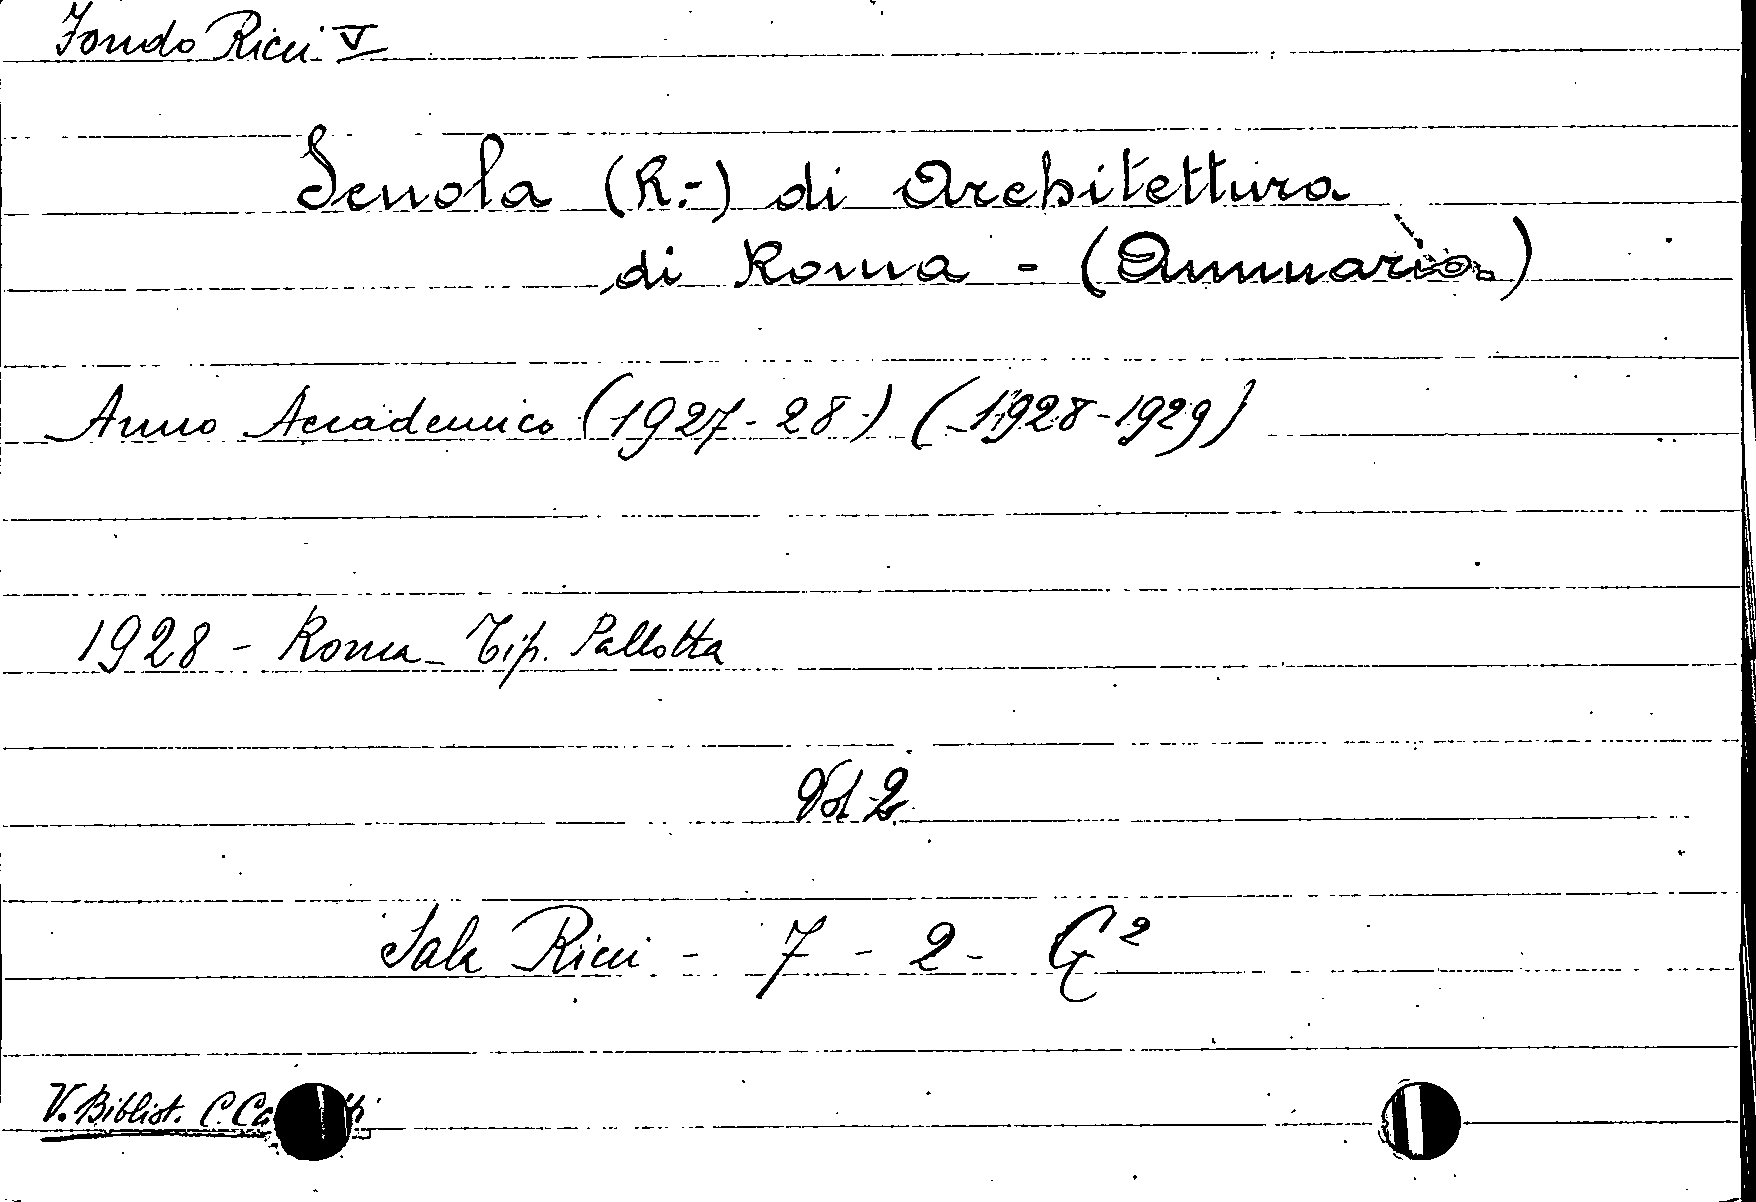 Fondo Ricci V
Scuola (R.-) di Architettura
di Roma - (Annuario.)
Anno Accademico (1927-28) (1928-1929)
1928 - Roma - Tip. Pallotta
Vol 2
Sala Ricci - 7 - 2 - G²
V. Bibliot. C.